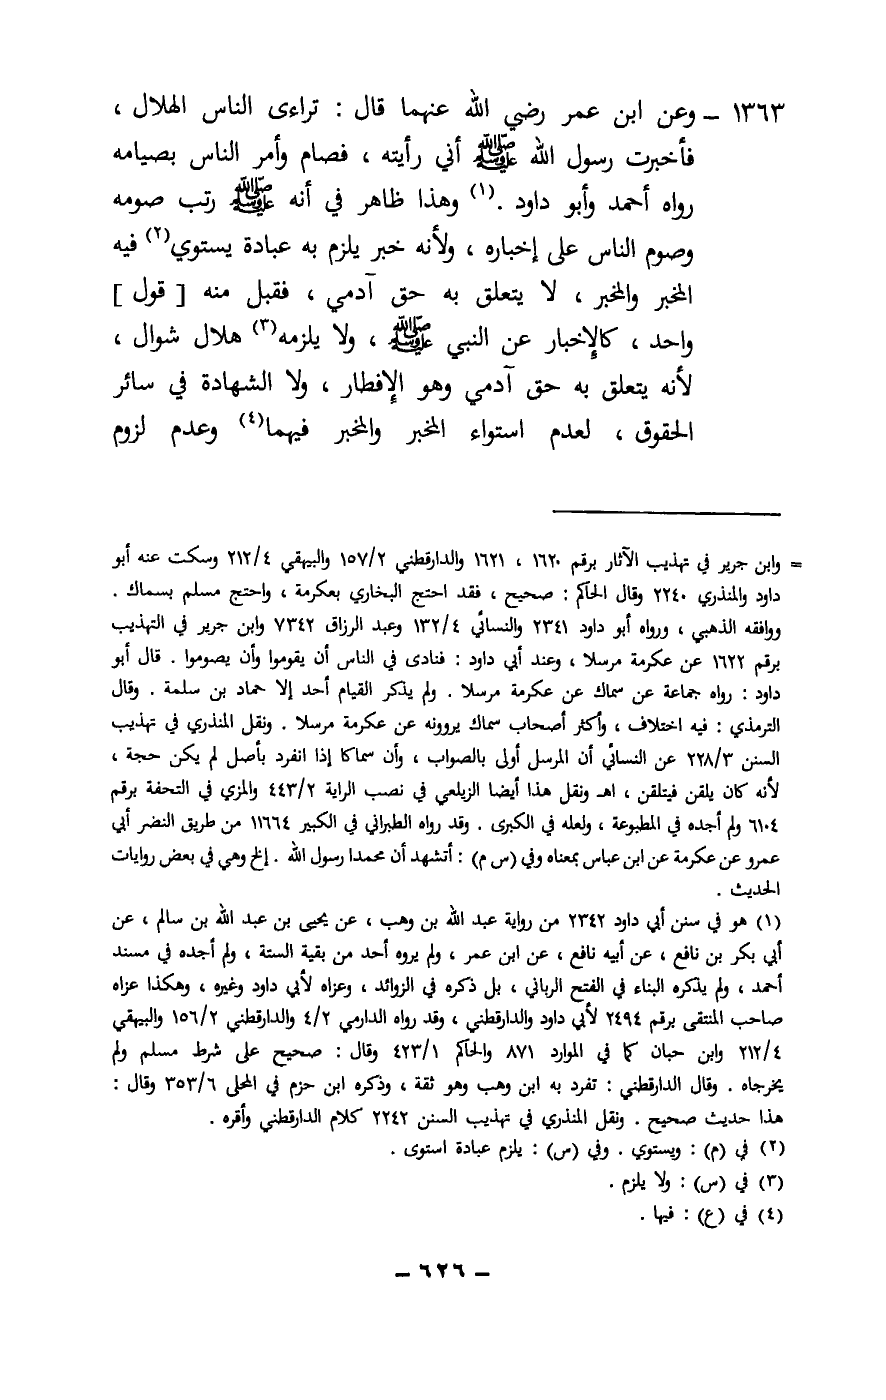 ١٣٦٣ ـ وعن ابن عمر رضي الله عنهما قال : تراءى الناس الهلال ،
فأخبرت رسول الله ﷺ أني رأيته ، فصام وأمر الناس بصيامه
رواه أحمد وأبو داود .(١) وهذا ظاهر في أنه ﷺ رتب صومه
وصوم الناس على إخباره ، ولأنه خبر يلزم به عبادة يستوي(٢) فيه
المخبر والمخبر ، لا يتعلق به حق آدمي ، فقبل منه [ قول ]
واحد ، كالإخبار عن النبي ﷺ ، ولا يلزمه(٣) هلال شوال ،
لأنه يتعلق به حق آدمي وهو الإفطار ، ولا الشهادة في سائر
الحقوق ، لعدم استواء المخبر والمخبر فيهما(٤) وعدم لزوم
= وابن جرير في تهذيب الآثار برقم ١٦٢٠ ، ١٦٢١ والدارقطني ١٥٧/٢ والبيهقي ٢١٢/٤ وسكت عنه أبو
داود والمنذري ٢٢٤٠ وقال الحاكم : صحيح ، فقد احتج البخاري بعكرمة ، واحتج مسلم بسماك .
ووافقه الذهبي ، ورواه أبو داود ٢٣٤١ والنسائي ١٣٢/٤ وعبد الرزاق ٧٣٤٢ وابن جرير في التهذيب
برقم ١٦٢٢ عن عكرمة مرسلا ، وعند أبي داود : فنادى في الناس أن يقوموا وأن يصوموا . قال أبو
داود : رواه جماعة عن سماك عن عكرمة مرسلا . ولم يذكر القيام أحد إلا حماد بن سلمة . وقال
الترمذي : فيه اختلاف ، وأكثر أصحاب سماك يروونه عن عكرمة مرسلا . ونقل المنذري في تهذيب
السنن ٢٢٨/٣ عن النسائي أن المرسل أولى بالصواب ، وأن سماكا إذا انفرد بأصل لم يكن حجة ،
لأنه كان يلقن فيتلقن ، اهـ ونقل هذا أيضا الزيلعي في نصب الراية ٤٤٣/٢ والمزي في التحفة برقم
٦١٠٤ ولم أجده في المطبوعة ، ولعله في الكبرى . وقد رواه الطبراني في الكبير ١١٦٦٤ من طريق النضر أبي
عمرو عن عكرمة عن ابن عباس بمعناه وفي (س م) : أتشهد أن محمدا رسول الله . إلخ وهي في بعض روايات
الحديث .
(١) هو في سنن أبي داود ٢٣٤٢ من رواية عبد الله بن وهب ، عن يحيى بن عبد الله بن سالم ، عن
أبي بكر بن نافع ، عن أبيه نافع ، عن ابن عمر ، ولم يروه أحد من بقية الستة ، ولم أجده في مسند
أحمد ، ولم يذكره البناء في الفتح الرباني ، بل ذكره في الزوائد ، وعزاه لأبي داود وغيره ، وهكذا عزاه
صاحب المنتقى برقم ٢٤٩٤ لأبي داود والدارقطني ، وقد رواه الدارمي ٤/٢ والدارقطني ١٥٦/٢ والبيهقي
٢١٢/٤ وابن حبان كما في الموارد ٨٧١ والحاكم ٤٢٣/١ وقال : صحيح على شرط مسلم ولم
يخرجاه . وقال الدارقطني : تفرد به ابن وهب وهو ثقة ، وذكره ابن حزم في المحلى ٣٥٣/٦ وقال :
هذا حديث صحيح . ونقل المنذري في تهذيب السنن ٢٢٤٢ كلام الدارقطني وأقره .
(٢) في (م) : ويستوي . وفي (س) : يلزم عبادة استوى .
(٣) في (س) : ولا يلزم .
(٤) في (ع) : فيها .
ـ ٦٢٦ ـ